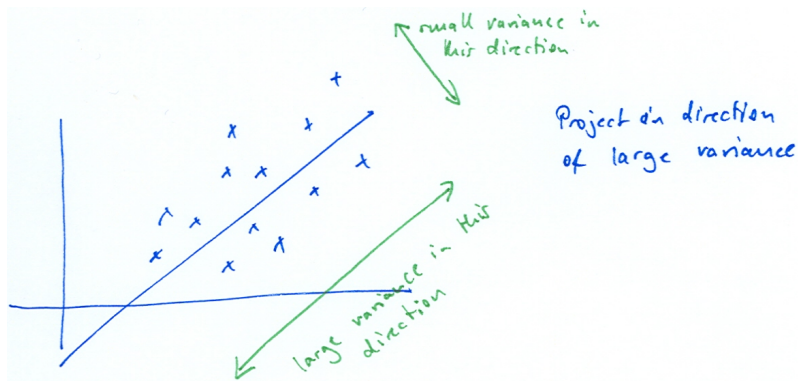 small variance in
this direction
Project in direction
of large variance
large variance in this
direction